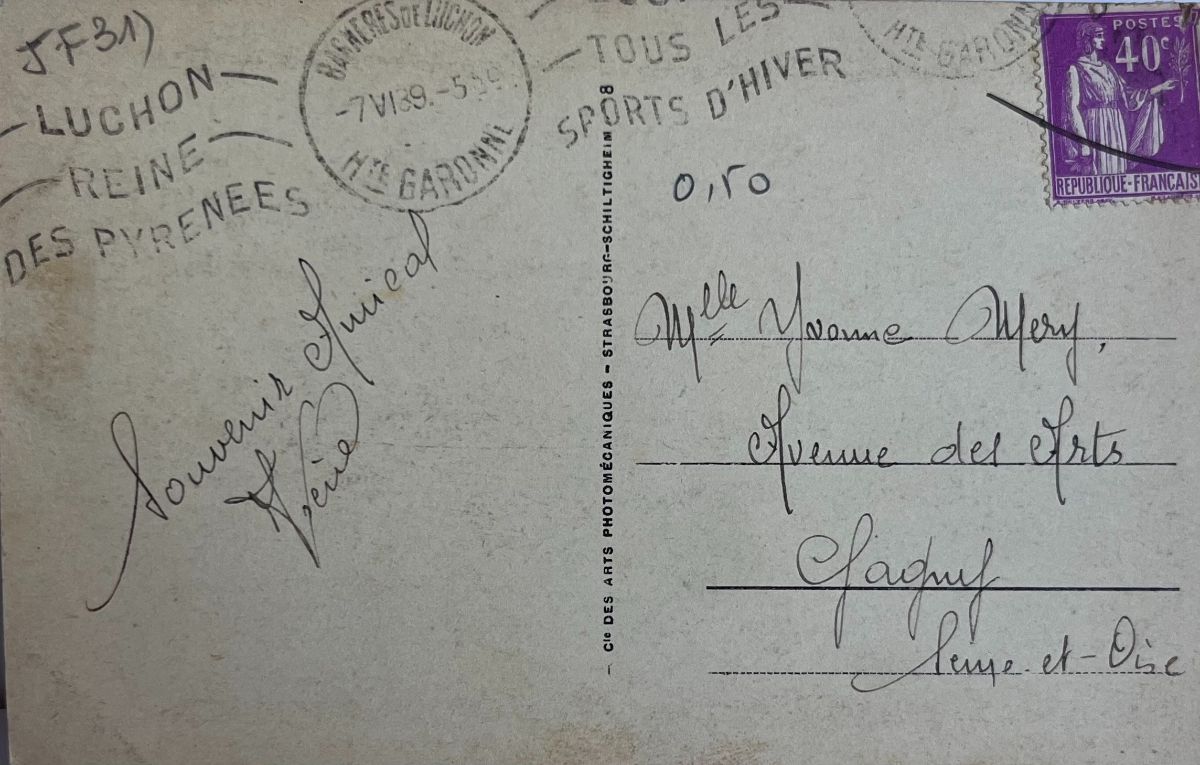 JF31)
LUCHON
REINE
DES PYRENEES
BAGNERES DE LUCHON
-7 VI 39.-5
HTE GARONNE
TOUS LES
SPORTS D'HIVER
HTE GARONNE
POSTES
40c
REPUBLIQUE-FRANÇAIS
0,50
Souvenir Amical
Cie DES ARTS PHOTOMÉCANIQUES - STRASBOURG-SCHILTIGHEIM 8
Mlle Yvonne Mery,
Avenue des Arts
Gagny
Seine-et-Oise